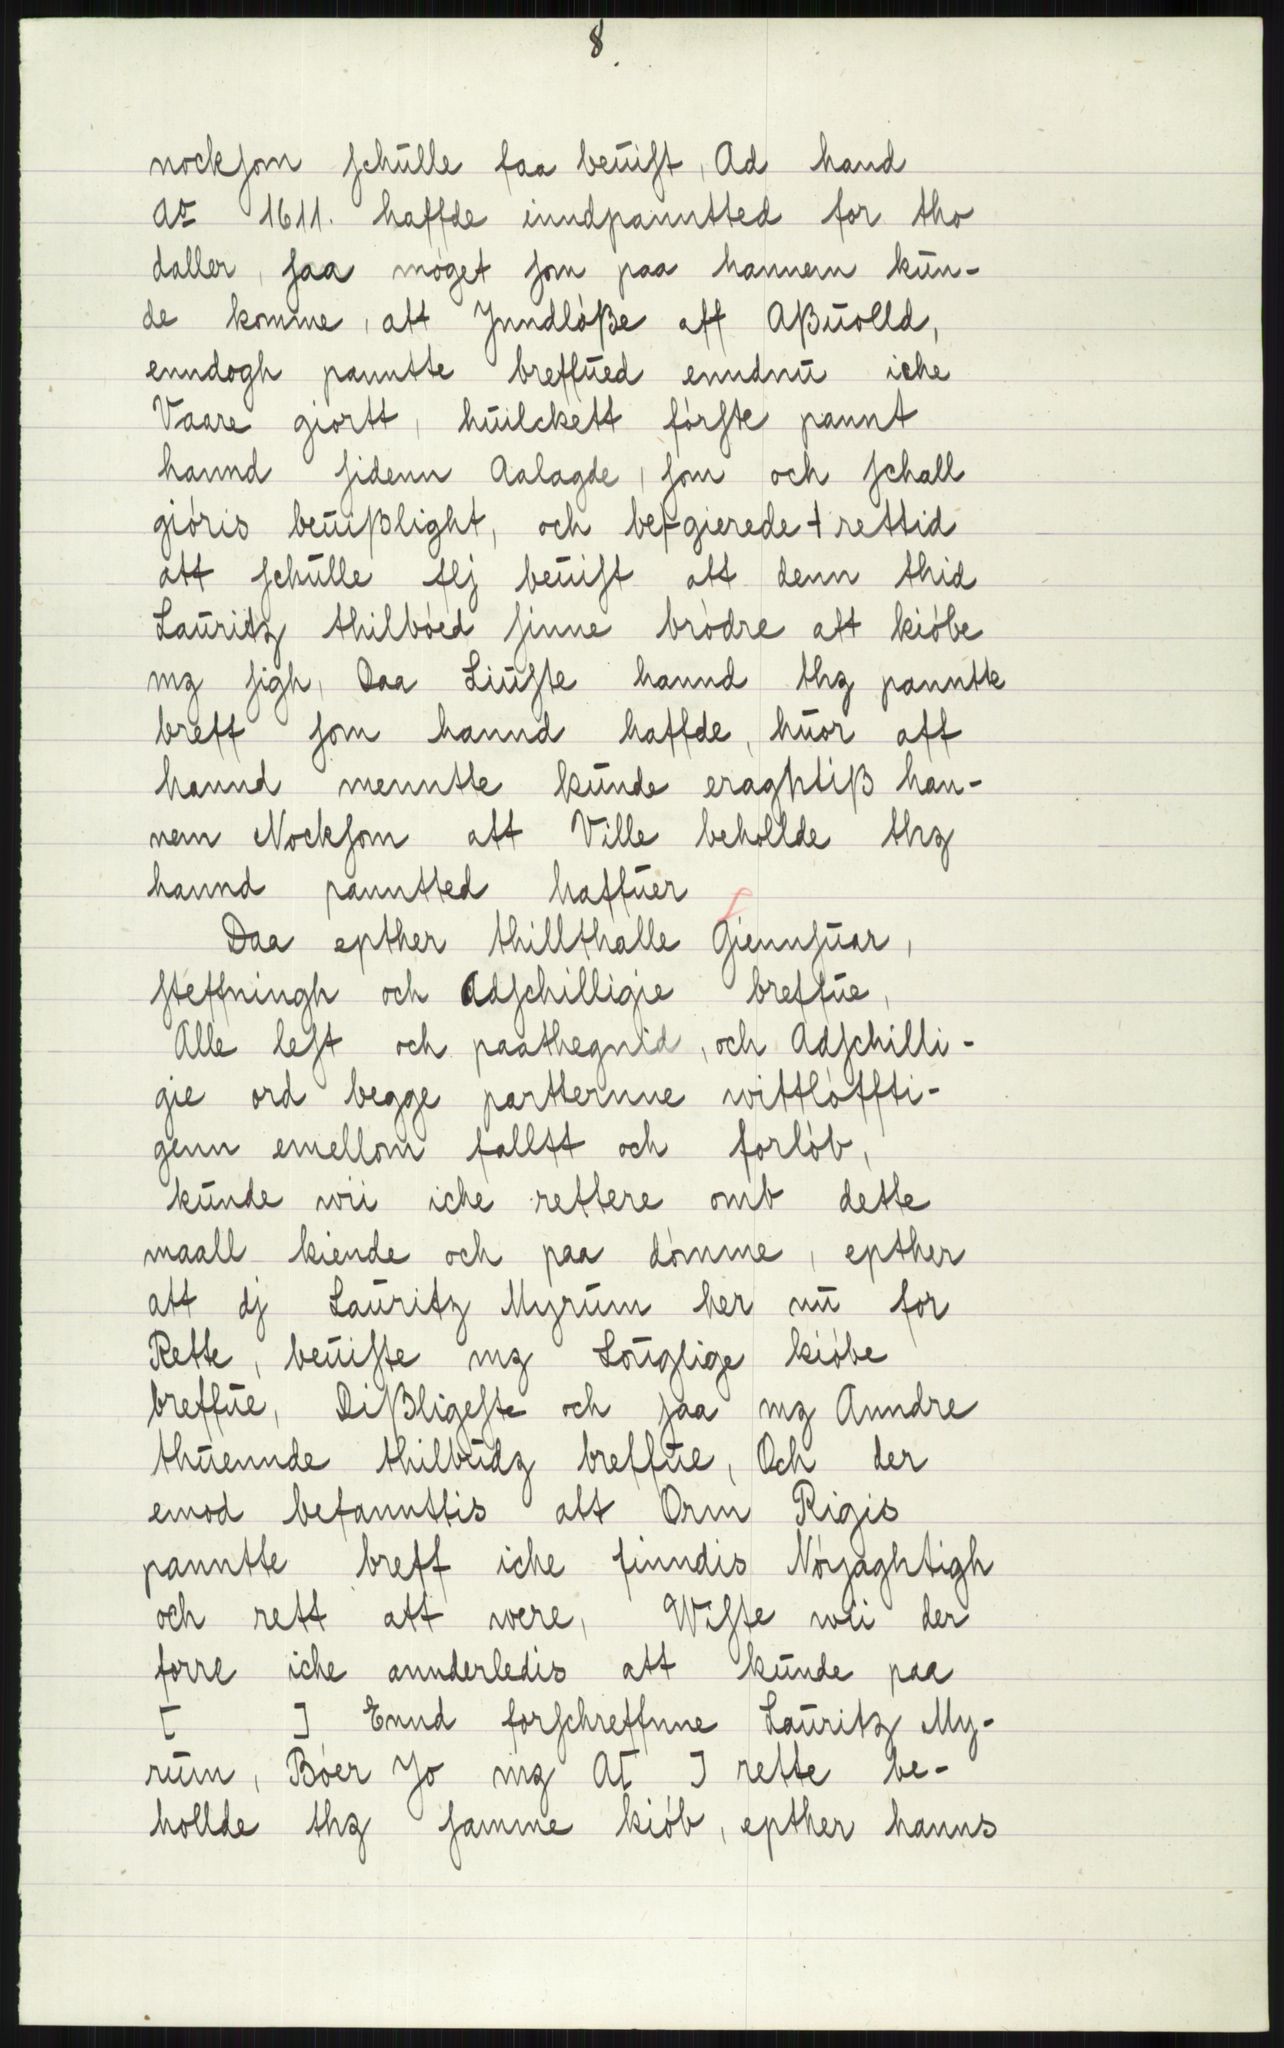 8.
nocksom schulle faa beuist, Ad hand
Ao 1611. haffde inndpanntted for tho
daller, saa møget som paa hannem kun-
de komme, att Jnndløße aff Aßuolld,
enndogh panntte breffued enndnu iche
Vaare giortt, huilckett første pannt
hannd sidenn Aalagde, som och schall
giøris beuißlight, och be[gierede] rettid
att schulle slj beuist att denn thid
Lauritz thilbøed sinne brødre att kiøbe
mz sigh, Daa Liuste hannd thz panntte
breff som hannd haffde, huor aff
hannd menntte kunde eraghtiß han-
nem Nocksom att Ville behollde thz
hannd panntted haffuer
Daa epther thillthalle Giennsuar,
steffningh och Adschilligie breffue,
Alle lest och paathegnid, och Adschilli-
gie ord begge partternne wittløffti-
genn emellom falltt och forløb,
kunde wii iche rettere omb dette
maall kiende och paa dømme, epther
att dj Lauritz Myrum her nu for
Rette, beuiste mz Louglige kiøbe
breffue, Dißligeste och saa mz Anndre
thuennde thilbudz breffue, Och der
emod befannttis att Orm Rigis
panntte breff iche finndis Nøyaghtigh
och rett att were, Wiste wii der
forre iche annderledis att kunde paa
[ ] Ennd forschreffnne Lauritz My-
rum, Bøer Jo mz A[ ] rette be-
hollde thz samme kiøb, epther hanns